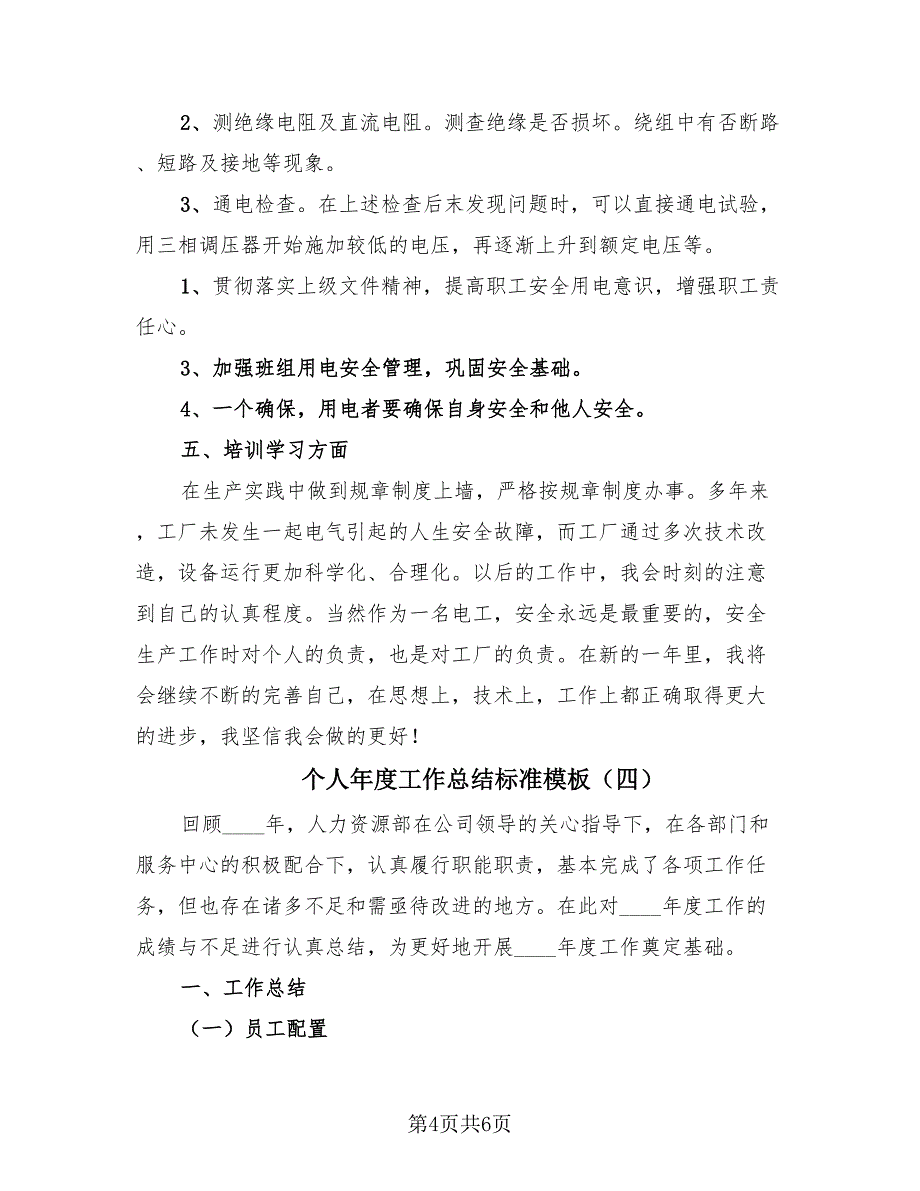 2、测绝缘电阻及直流电阻。测查绝缘是否损坏。绕组中有否断路
、短路及接地等现象。
3、通电检查。在上述检查后末发现问题时，可以直接通电试验，
用三相调压器开始施加较低的电压，再逐渐上升到额定电压等。
1、贯彻落实上级文件精神，提高职工安全用电意识，增强职工责
任心。
3、加强班组用电安全管理，巩固安全基础。
4、一个确保，用电者要确保自身安全和他人安全。
五、培训学习方面
在生产实践中做到规章制度上墙，严格按规章制度办事。多年来
，工厂未发生一起电气引起的人生安全故障，而工厂通过多次技术改
造，设备运行更加科学化、合理化。以后的工作中，我会时刻的注意
到自己的认真程度。当然作为一名电工，安全永远是最重要的，安全
生产工作时对个人的负责，也是对工厂的负责。在新的一年里，我将
会继续不断的完善自己，在思想上，技术上，工作上都正确取得更大
的进步，我坚信我会做的更好！
个人年度工作总结标准模板（四）
回顾____年，人力资源部在公司领导的关心指导下，在各部门和
服务中心的积极配合下，认真履行职能职责，基本完成了各项工作任
务，但也存在诸多不足和需亟待改进的地方。在此对____年度工作的
成绩与不足进行认真总结，为更好地开展____年度工作奠定基础。
一、工作总结
（一）员工配置
第4页共6页